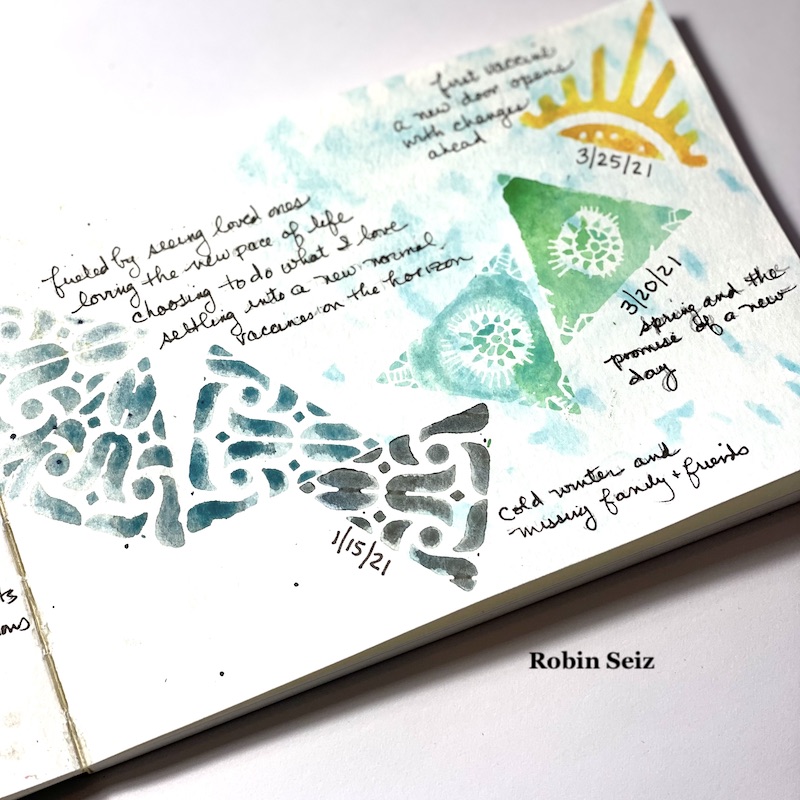 first vaccine
a new door opens
with changes
ahead
3/25/21
fueled by seeing loved ones
loving the new pace of life
choosing to do what I love
settling into a new normal
vaccines on the horizon
3/20/21
spring and the
promise of a new
day
cold winter and
missing family + friends
1/15/21
Robin Seiz